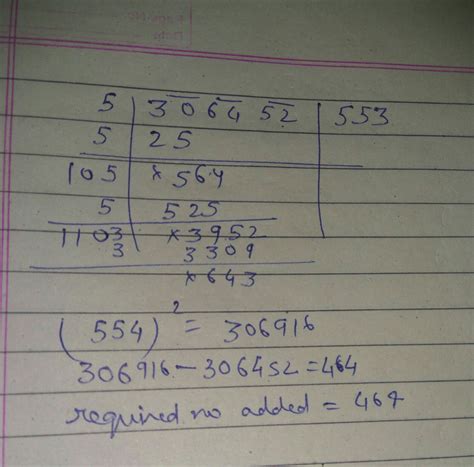 5 | 30 64 52 | 553
5 | 25
105 | × 564
5 | 525
1103 | × 3952
3 | 3309
× 643
(554)² = 306916
306916 - 306452 = 464
required no added = 464